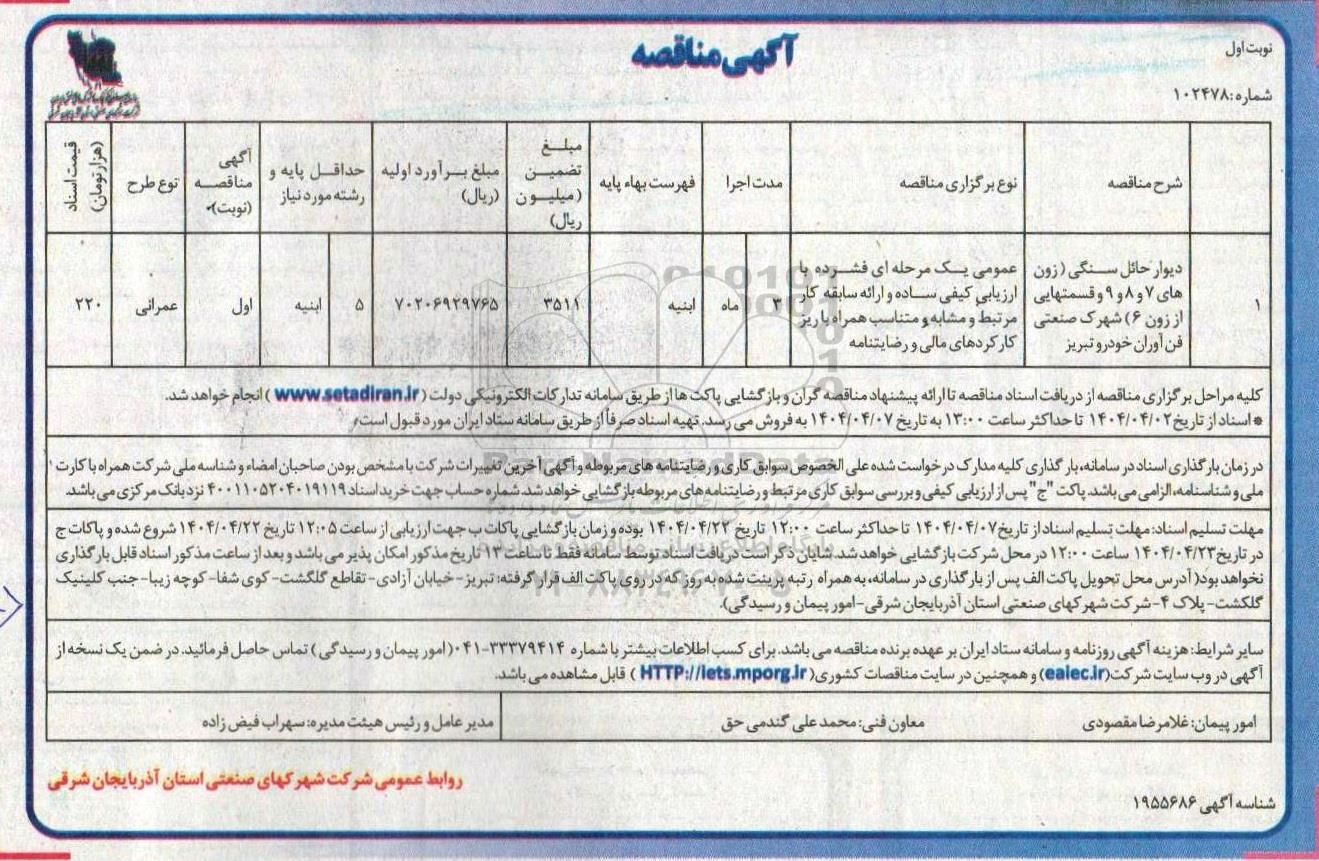 آگهی مناقصه
نوبت اول
شماره: ۱۰۲۴۷۸
شرح مناقصه
نوع برگزاری مناقصه
مدت اجرا
فهرست بهاء پایه
مبلغ تضمین (میلیون ریال)
مبلغ برآورد اولیه (ریال)
حداقل پایه و رشته مورد نیاز
آگهی مناقصه (نوبت)
نوع طرح
قیمت اسناد (هزار تومان)
۱
دیوار حائل سنگی (زون
های ۷ و ۸ و ۹ و قسمتهایی
از زون ۶) شهرک صنعتی
فن آوران خودرو تبریز
عمومی یک مرحله ای فشرده با
ارزیابی کیفی ساده و ارائه سابقه کار
مرتبط و مشابه و متناسب همراه با ریز
کارکردهای مالی و رضایتنامه
۳ ماه
ابنیه
۳۵۱۱
۷۰۲۰۶۹۲۹۷۶۵
۵ ابنیه
اول
عمرانی
۲۲۰
کلیه مراحل برگزاری مناقصه از دریافت اسناد مناقصه تا ارائه پیشنهاد مناقصه گران و بازگشایی پاکت ها از طریق سامانه تدارکات الکترونیکی دولت (www.setadiran.ir) انجام خواهد شد.
*اسناد از تاریخ ۱۴۰۴/۰۴/۰۲ تا حداکثر ساعت ۱۳:۰۰ به تاریخ ۱۴۰۴/۰۴/۰۷ به فروش می رسد. تهیه اسناد صرفاً از طریق سامانه ستاد ایران مورد قبول است.
در زمان بارگذاری اسناد در سامانه، بارگذاری کلیه مدارک درخواست شده علی الخصوص سوابق کاری و رضایتنامه های مربوطه و آگهی آخرین تغییرات شرکت با مشخص بودن صاحبان امضاء و شناسه ملی شرکت همراه با کارت
ملی و شناسنامه، الزامی می باشد. پاکت "ج" پس از ارزیابی کیفی و بررسی سوابق کاری مرتبط و رضایتنامه های مربوطه بازگشایی خواهد شد. شماره حساب جهت خرید اسناد ۴۰۰۱۱۰۵۲۰۴۰۱۹۱۱۹ نزد بانک مرکزی می باشد.
مهلت تسلیم اسناد: مهلت تسلیم اسناد از تاریخ ۱۴۰۴/۰۴/۰۷ تا حداکثر ساعت ۱۲:۰۰ تاریخ ۱۴۰۴/۰۴/۲۲ بوده و زمان بازگشایی پاکات ب جهت ارزیابی از ساعت ۱۲:۰۵ تاریخ ۱۴۰۴/۰۴/۲۲ شروع شده و پاکات ج
در تاریخ ۱۴۰۴/۰۴/۲۳ ساعت ۱۲:۰۰ در محل شرکت بازگشایی خواهد شد. شایان ذکر است دریافت اسناد توسط سامانه فقط تا ساعت ۱۳ تاریخ مذکور امکان پذیر می باشد و بعد از ساعت مذکور اسناد قابل بارگذاری
نخواهد بود( آدرس محل تحویل پاکت الف پس از بارگذاری در سامانه، به همراه رتبه پرینت شده به روز که در روی پاکت الف قرار گرفته: تبریز- خیابان آزادی- تقاطع گلگشت- کوی شفا- کوچه زیبا- جنب کلینیک
گلگشت- پلاک ۴- شرکت شهرکهای صنعتی استان آذربایجان شرقی- امور پیمان و رسیدگی).
سایر شرایط: هزینه آگهی روزنامه و سامانه ستاد ایران بر عهده برنده مناقصه می باشد. برای کسب اطلاعات بیشتر با شماره ۳۳۳۷۹۴۱۴-۰۴۱ (امور پیمان و رسیدگی) تماس حاصل فرمائید. در ضمن یک نسخه از
آگهی در وب سایت شرکت (eaiec.ir) و همچنین در سایت مناقصات کشوری (HTTP://iets.mporg.ir) قابل مشاهده می باشد.
امور پیمان: غلامرضا مقصودی
معاون فنی: محمد علی گندمی حق
مدیر عامل و رئیس هیئت مدیره: سهراب فیض زاده
روابط عمومی شرکت شهرکهای صنعتی استان آذربایجان شرقی
شناسه آگهی ۱۹۵۵۶۸۶